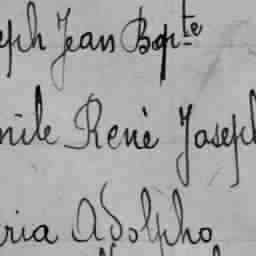 eph Jean Bapte
mile René Joseph
ria Adolpho